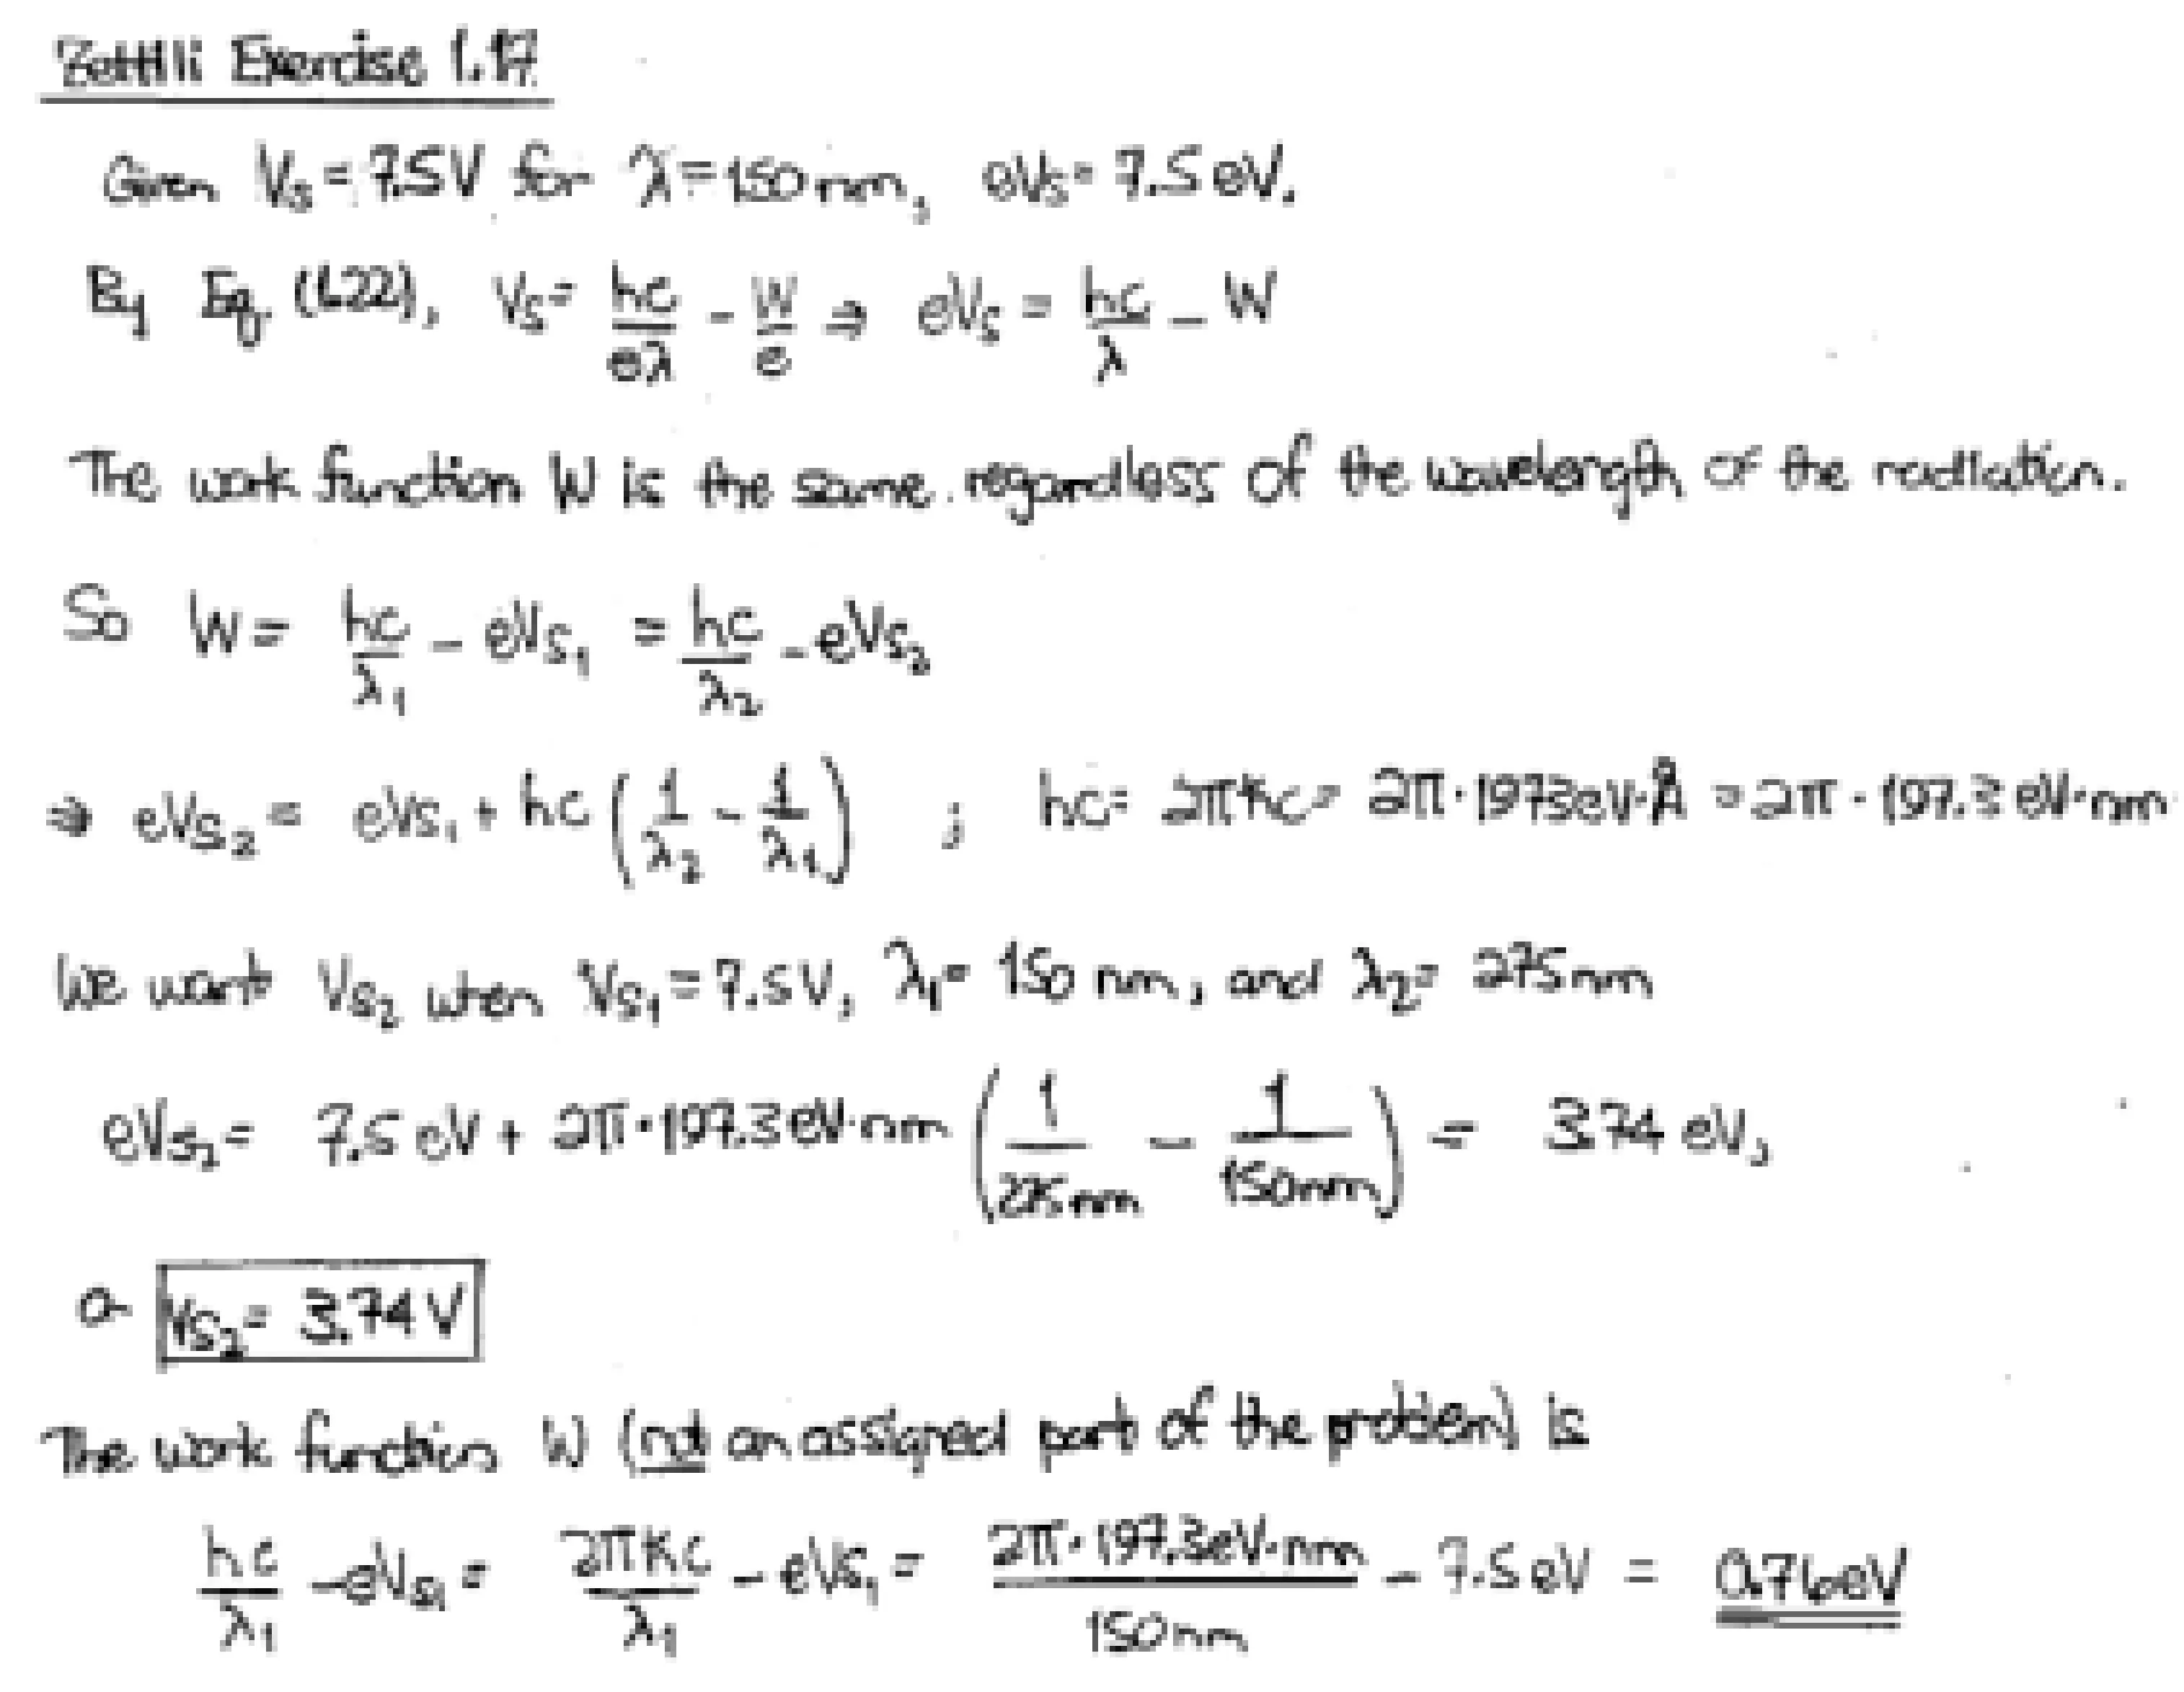 Zettili Exercise 1.17
Given Vs = 7.5V for λ = 150 nm, eVs = 7.5 eV.
By Eq. (1.22), Vs = hc/eλ - W/e ⇒ eVs = hc/λ - W
The work function W is the same regardless of the wavelength of the radiation.
So W = hc/λ₁ - eVs₁ = hc/λ₂ - eVs₂
⇒ eVs₂ = eVs₁ + hc (1/λ₂ - 1/λ₁) ; hc = 2πħc = 2π · 1973 eV·Å = 2π · 197.3 eV·nm
We want Vs₂ when Vs₁ = 7.5V, λ₁ = 150 nm, and λ₂ = 275 nm
eVs₂ = 7.5 eV + 2π · 197.3 eV·nm (1/275nm - 1/150nm) = 3.74 eV,
or Vs₂ = 3.74 V
The work function W (not an assigned part of the problem) is
hc/λ₁ - eVs₁ = 2πħc/λ₁ - eVs₁ = 2π · 197.3 eV·nm/150nm - 7.5 eV = 0.76 eV